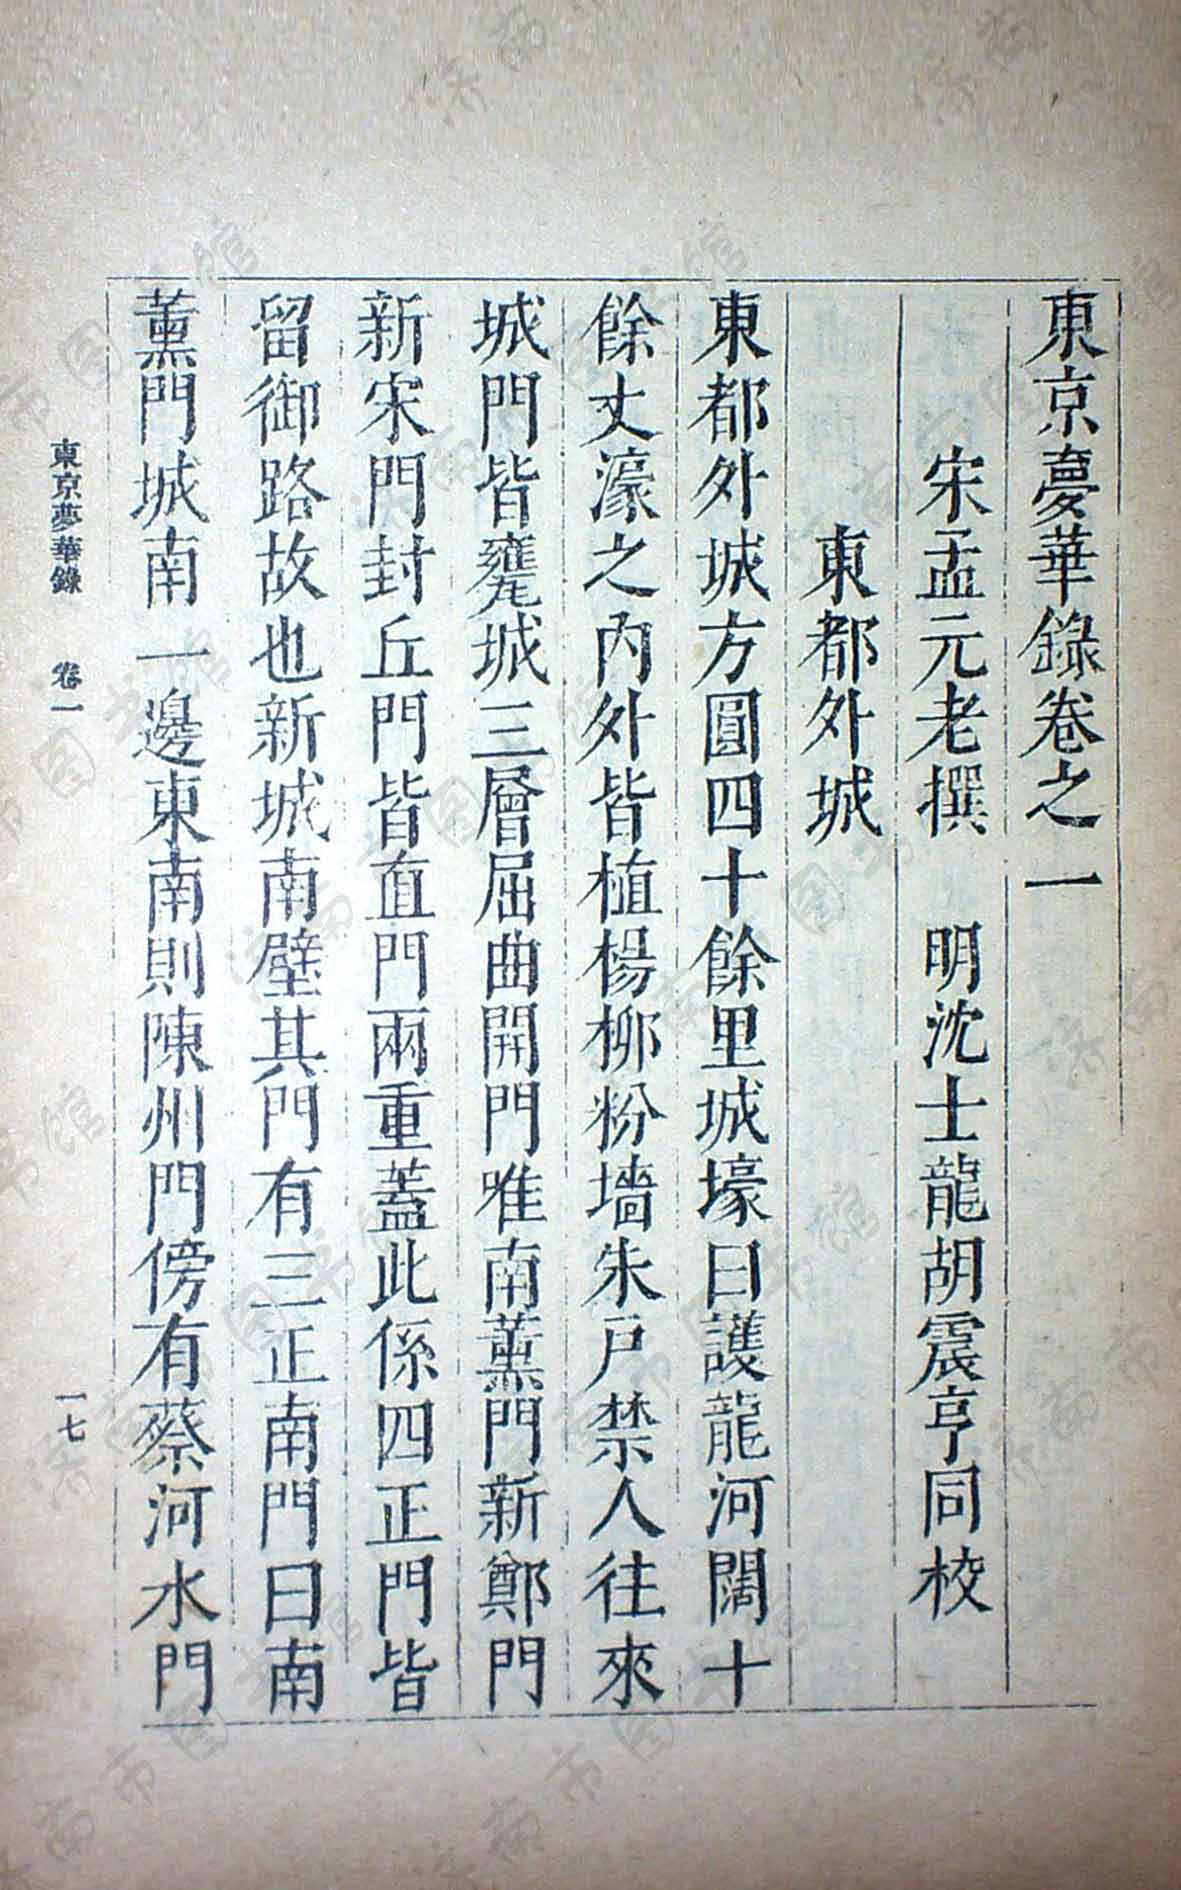 東京夢華錄卷之一
宋孟元老撰　明沈士龍胡震亨同校
東都外城
東都外城方圓四十餘里城壕曰護龍河闊十
餘丈濠之內外皆植楊柳粉墻朱戶禁人往來
城門皆甕城三層屈曲開門唯南薰門新鄭門
新宋門封丘門皆直門兩重蓋此係四正門皆
留御路故也新城南壁其門有三正南門曰南
薰門城南一邊東南則陳州門傍有蔡河水門
東京夢華錄　卷一
一七
济南市图书馆